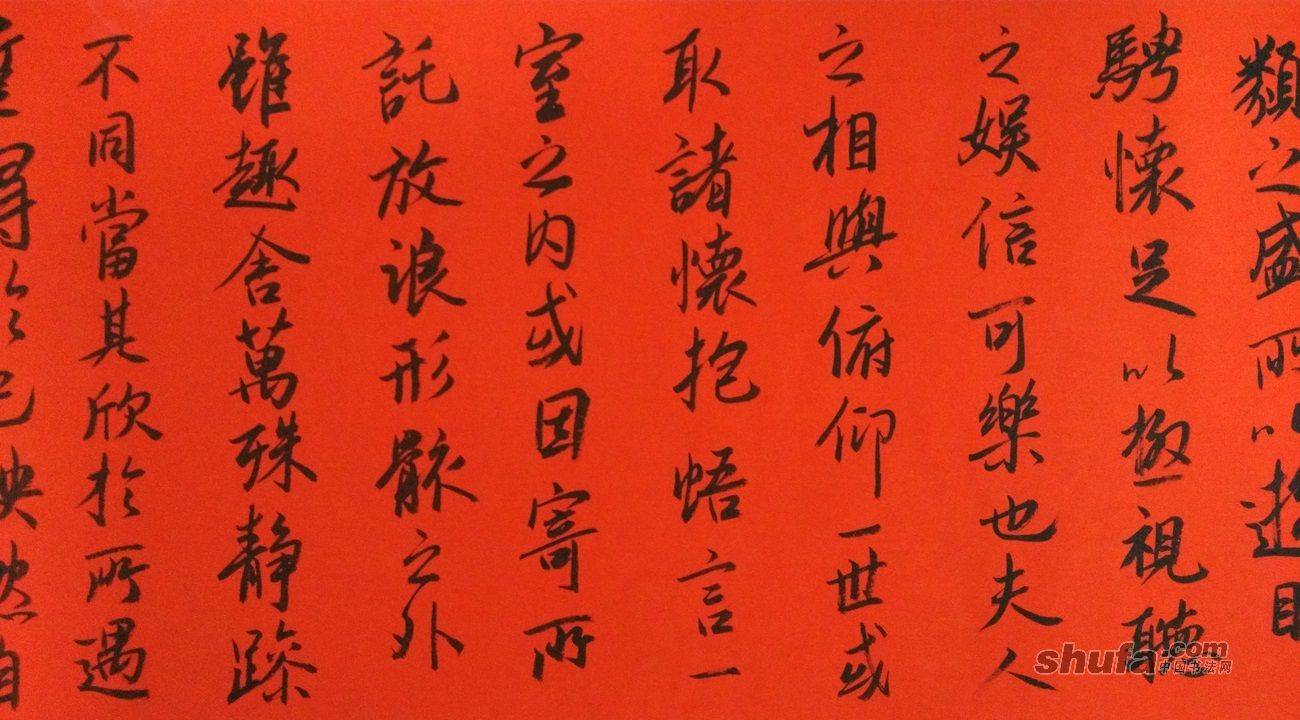 類之盛所以遊目
騁懷足以極視聽
之娛信可樂也夫人
之相與俯仰一世或
取諸懷抱悟言一
室之内或因寄所
託放浪形骸之外
雖趣舍萬殊静躁
不同當其欣於所遇
得於己怏然自
shufa.com
中国书法网